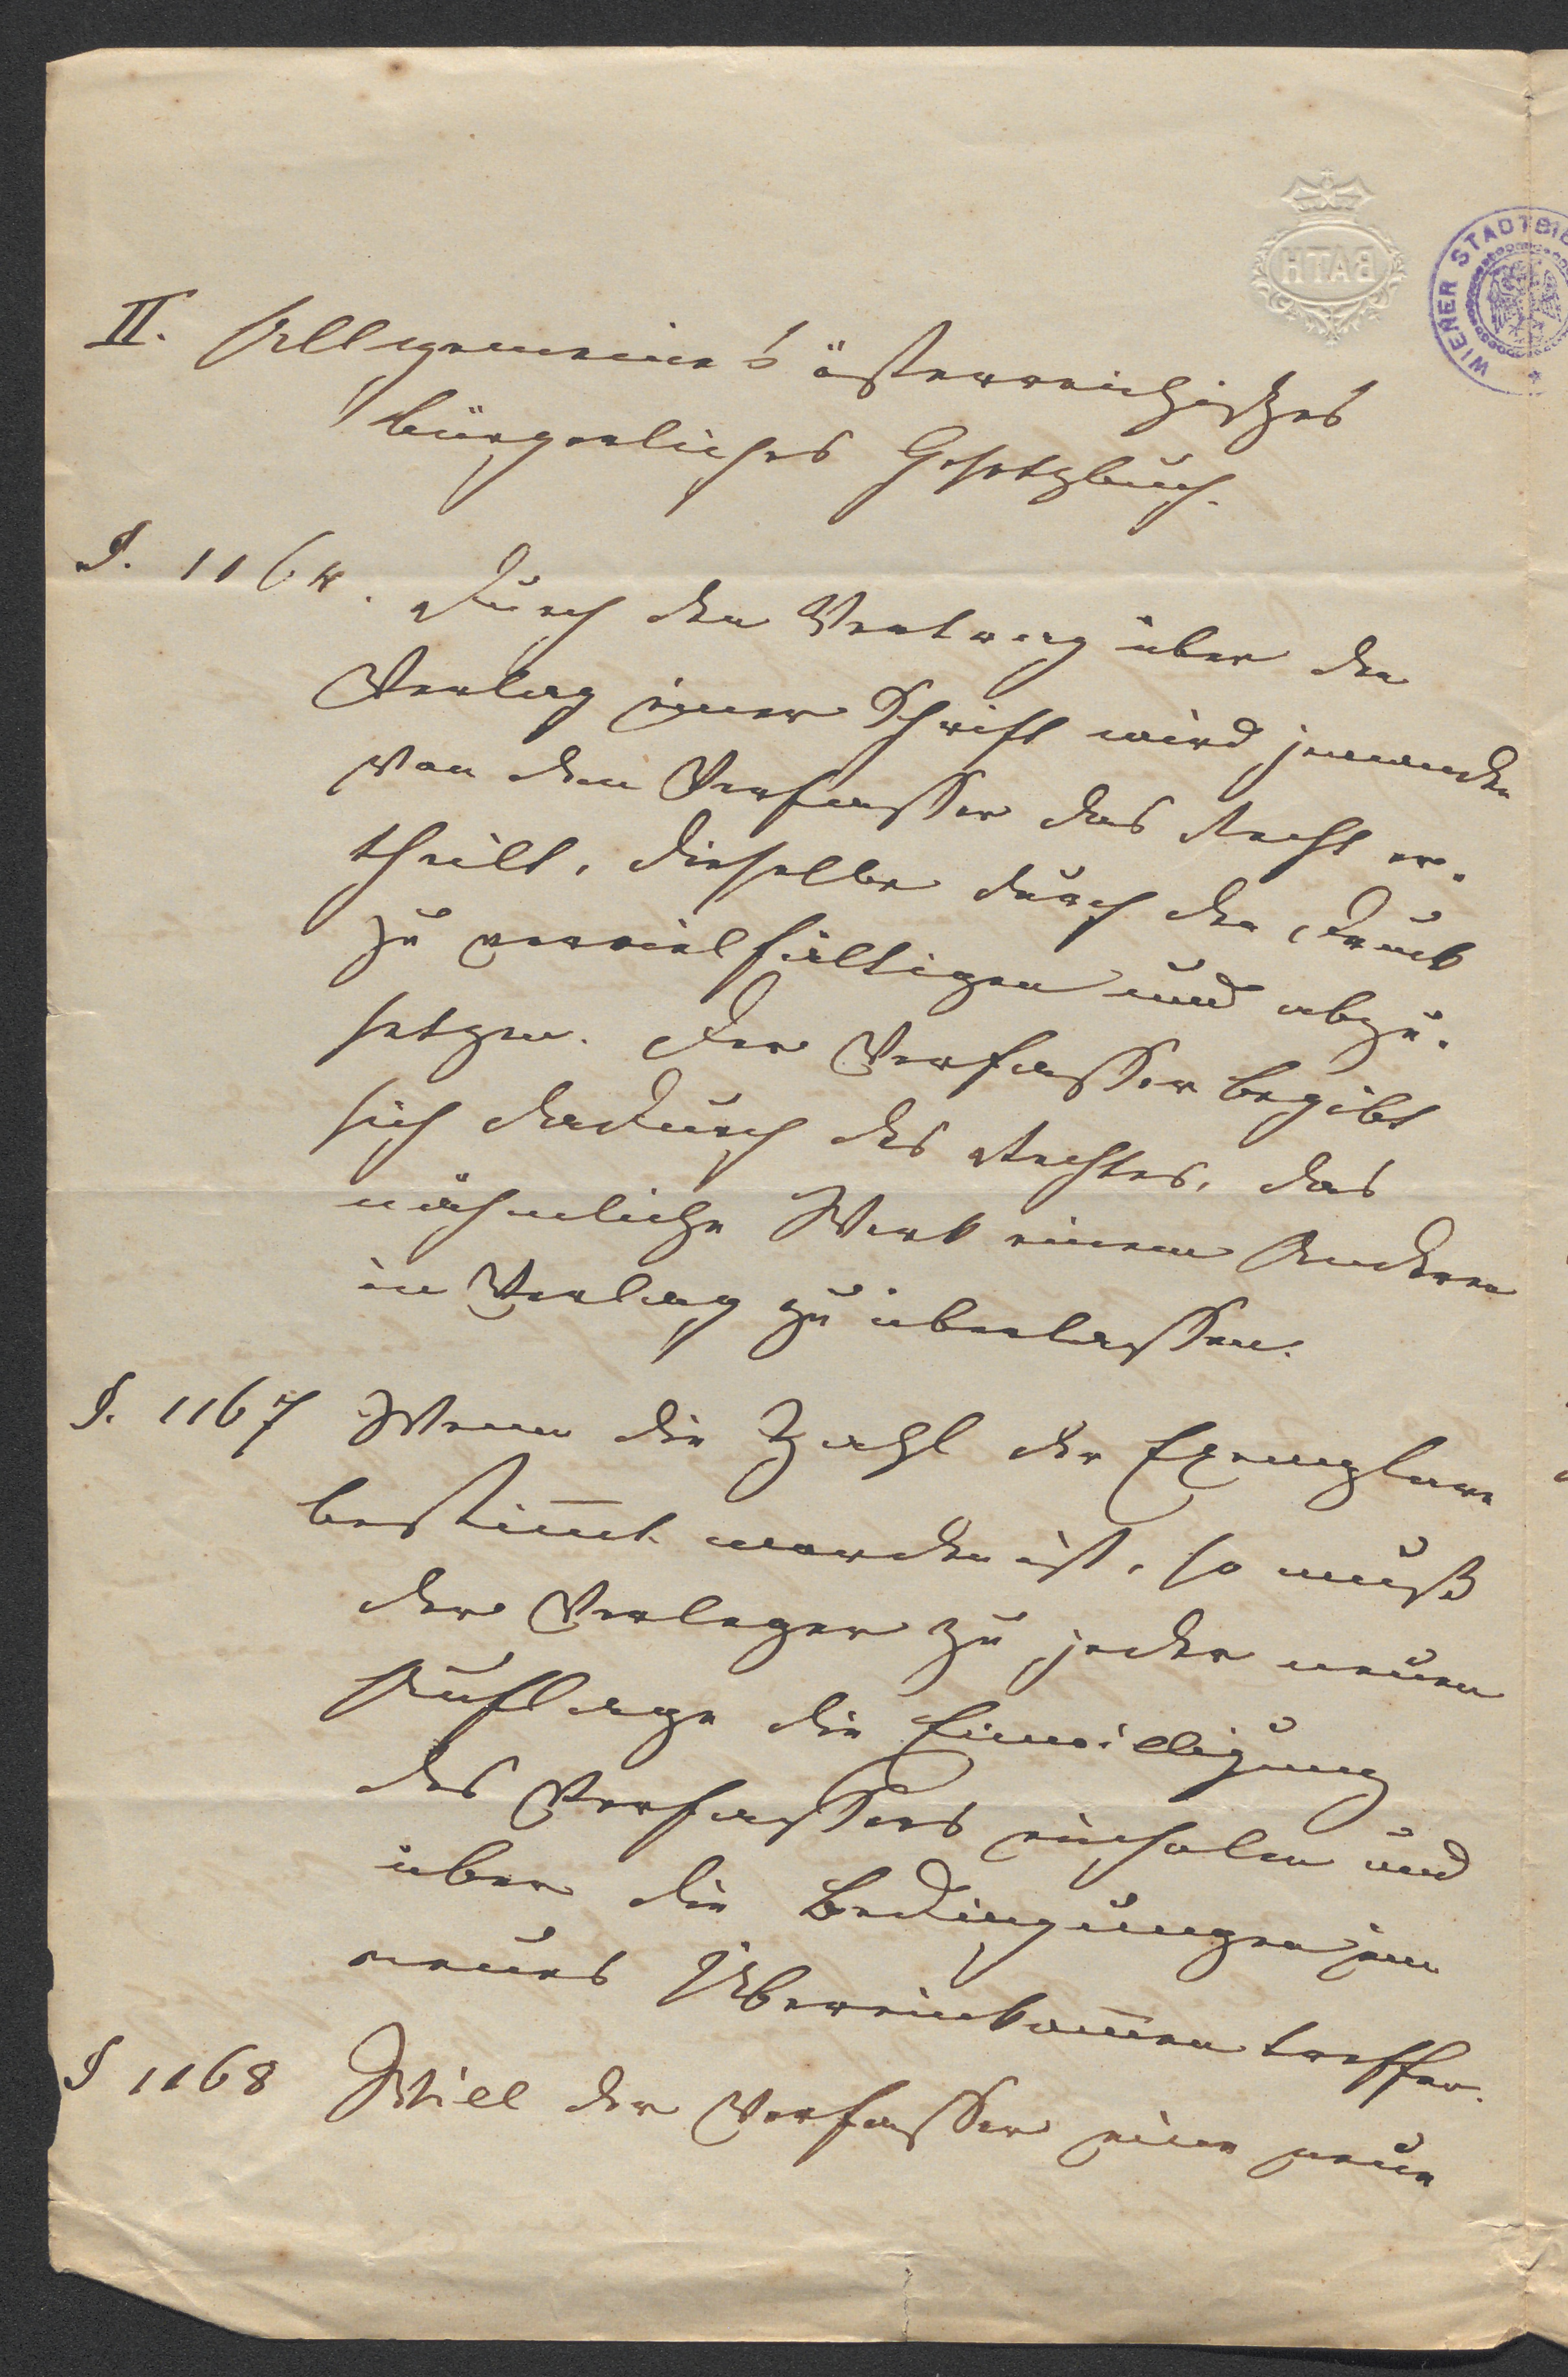 BATH
WIENER STADTBI
II. Allgemeines österreichisches
bürgerliches Gesetzbuch.
§. 1164. Durch den Vertrag über den
Verlag einer Schrift wird jemanden
von dem Verfasser das Recht er-
theilt, dieselbe durch den Druck
zu vervielfältigen und abzu-
setzen. Der Verfasser begibt
sich dadurch des Rechtes, das
nähmliche Werk einem Andern
in Verlag zu überlassen.
§. 1167 Wenn die Zahl der Exemplare
bestim̄t worden ist, so muß
der Verleger zu jeder neuen
Auflage die Einwilligung
des Verfassers einholen und
über die Bedingungen ein
neues Übereinkom̄en treffen.
§ 1168 Will der Verfasser eine neue